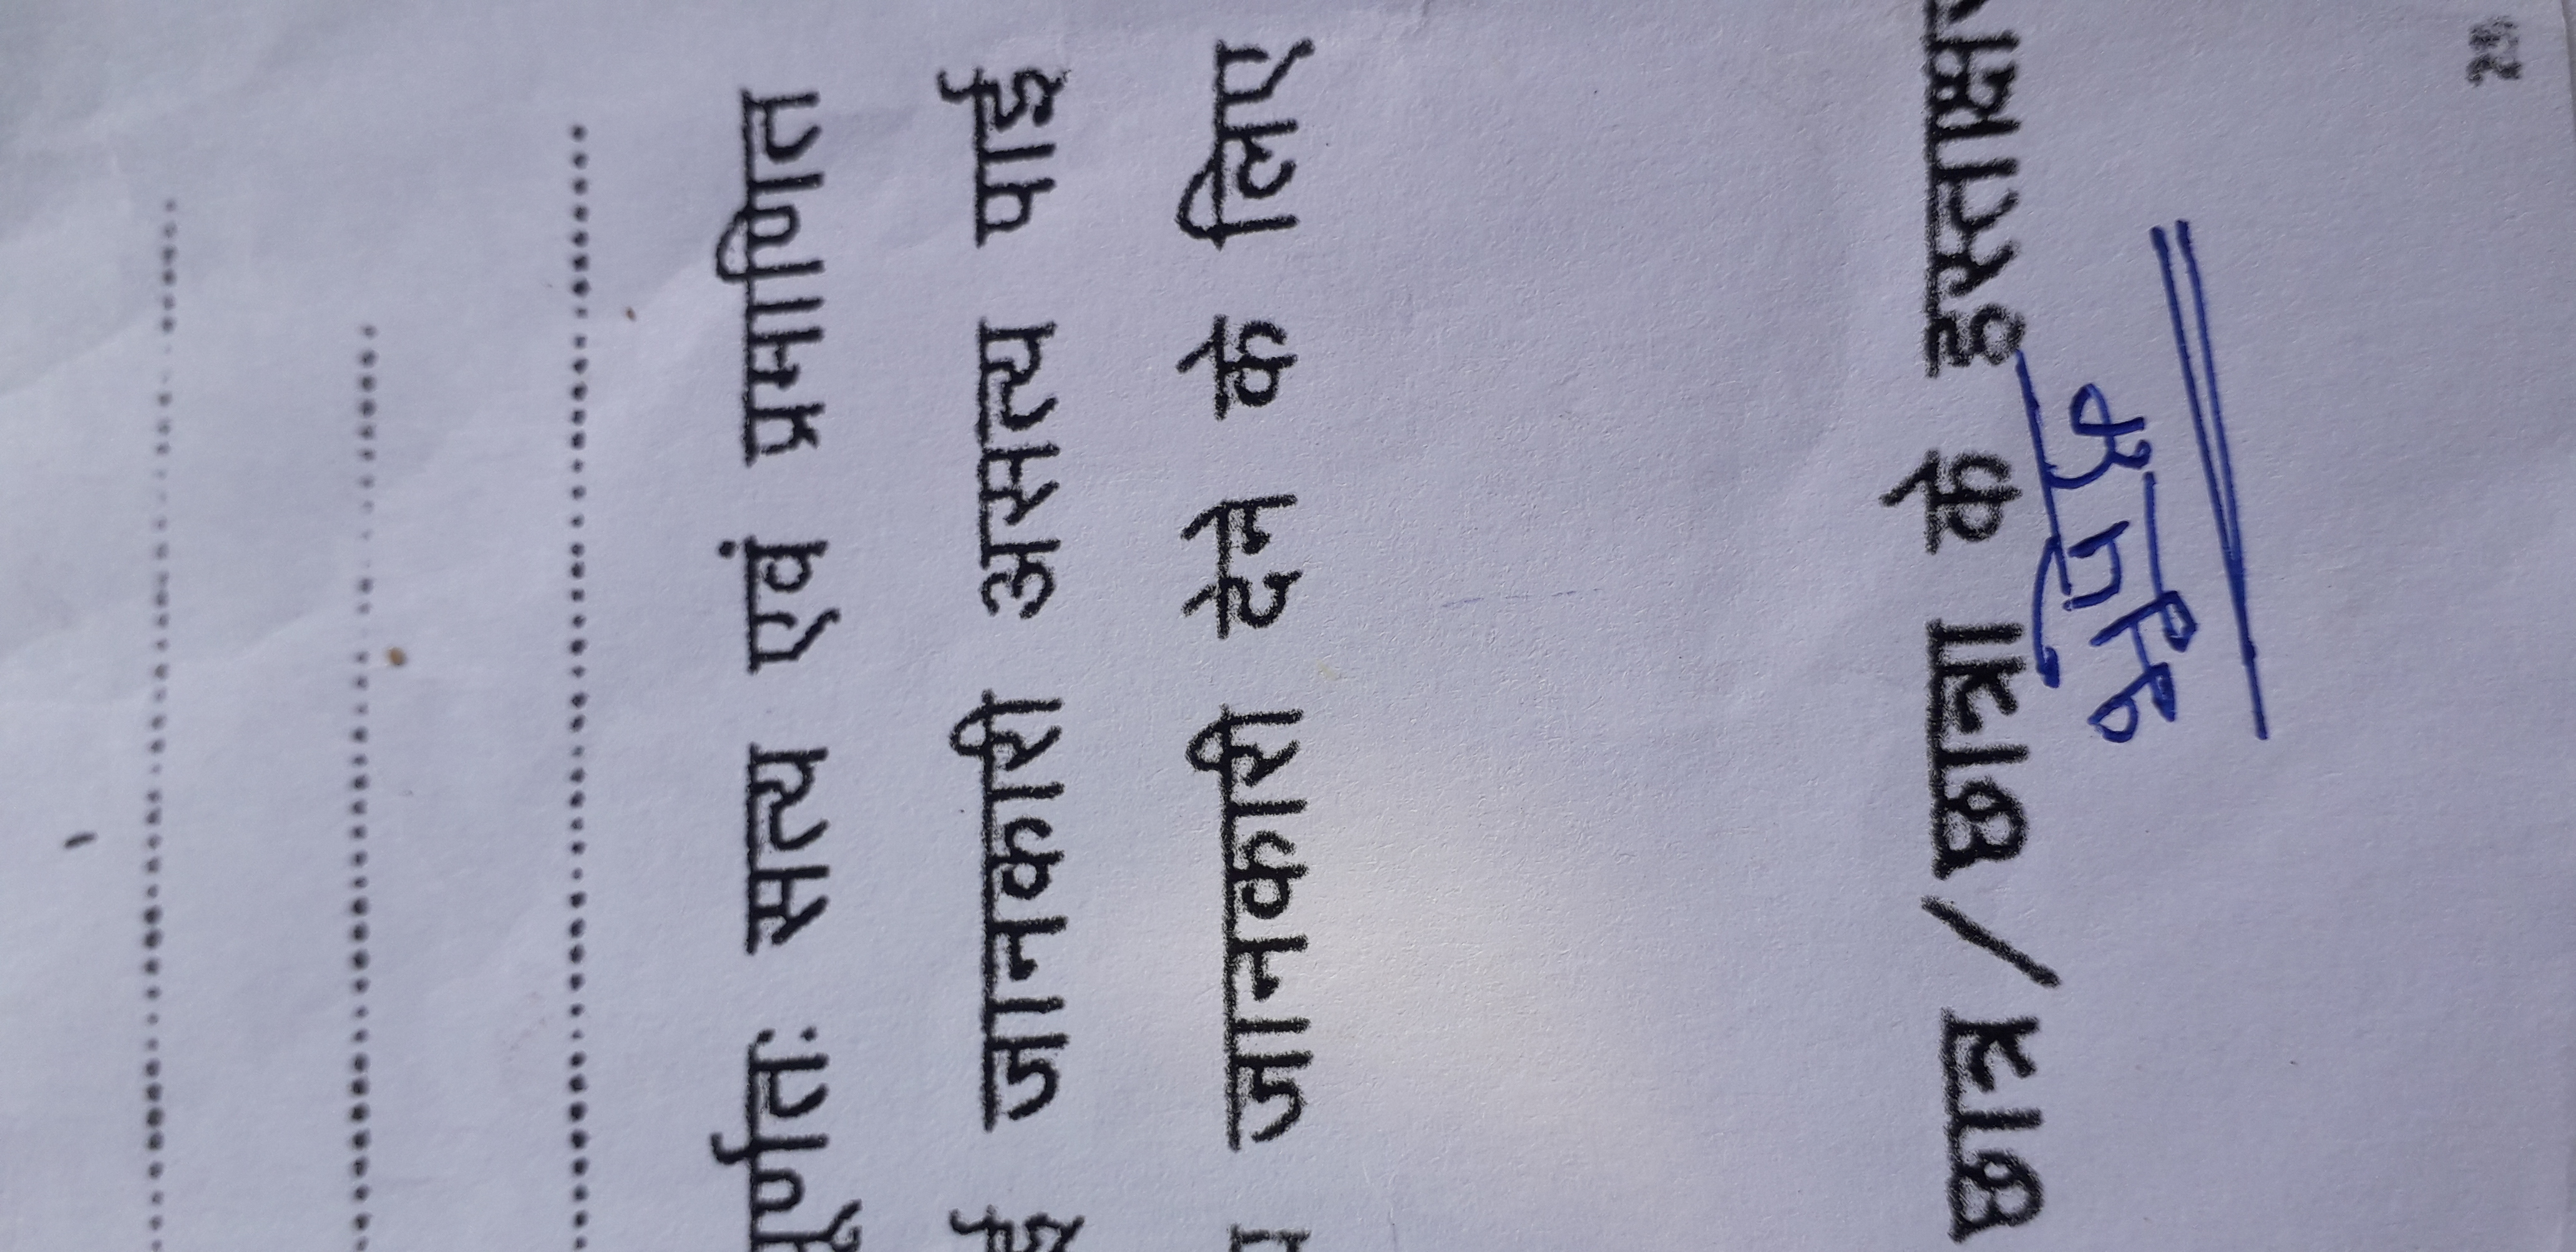 पूर्णतः सत्य एवं प्रमाणित
ई जानकारी असत्य पाई
जानकारी देने के लिए
छात्र / छात्रा के हस्ताक्षर